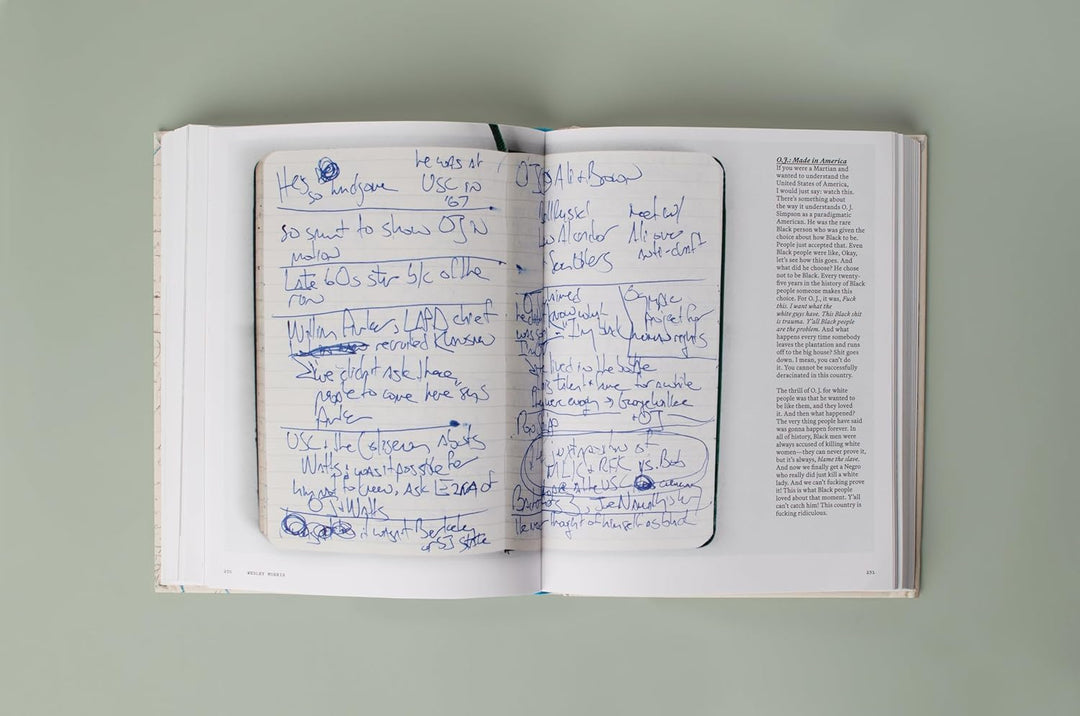 He's
so handsome
he was at
USC in
'67
so smart to show OJ in
motion
Late 60s star b/c of the
row
William Parker, LAPD chief
recruited
we didn't ask these
people to come here says
Parker
USC + the Coliseum abuts
Watts + was it possible for
him not to know, ask Ezra of
OJ + Watts
it wasn't Berkeley
or SJ State
OJ Ali + Brown
meet w/
Ali over
anti-draft
Olympic
Project for
human rights
lived in the
talent + love for a white
George Wallace
+ OJ
MLK + RFK vs. Bob
the USC
Joe Namath
He never thought of himself as black
230 WESLEY MORRIS
O.J.: Made in America
If you were a Martian and
wanted to understand the
United States of America,
I would just say: watch this.
There's something about
the way it understands O. J.
Simpson as a paradigmatic
American. He was the rare
Black person who was given the
choice about how Black to be.
People just accepted that. Even
Black people were like, Okay,
let's see how this goes. And
what did he choose? He chose
not to be Black. Every twenty-
five years in the history of Black
people someone makes this
choice. For O. J., it was, Fuck
this. I want what the
white guys have. This Black shit
is trauma. Y'all Black people
are the problem. And what
happens every time somebody
leaves the plantation and runs
off to the big house? Shit goes
down. I mean, you can't do
it. You cannot be successfully
deracinated in this country.
The thrill of O. J. for white
people was that he wanted to
be like them, and they loved
it. And then what happened?
The very thing people have said
was gonna happen forever. In
all of history, Black men were
always accused of killing white
women—they can never prove it,
but it's always, blame the slave.
And now we finally get a Negro
who really did just kill a white
lady. And we can't fucking prove
it! This is what Black people
loved about that moment. Y'all
can't catch him! This country is
fucking ridiculous.
231